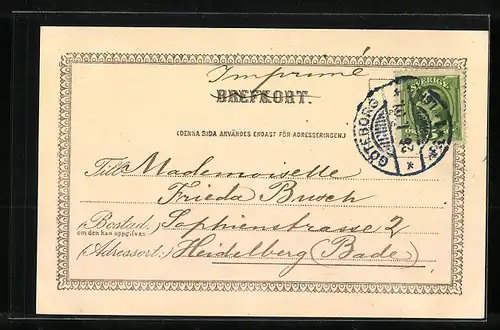 Imprimé
BREFKORT.
SVERIGE
GÖTEBORG
(DENNA SIDA ANVÄNDES ENDAST FÖR ADRESSERINGEN.)
Till Mademoiselle
Frieda Busch
(Bostad, Sophienstrasse 2
om den kan uppgifvas.
(Adressort:) Heidelberg (Bade)